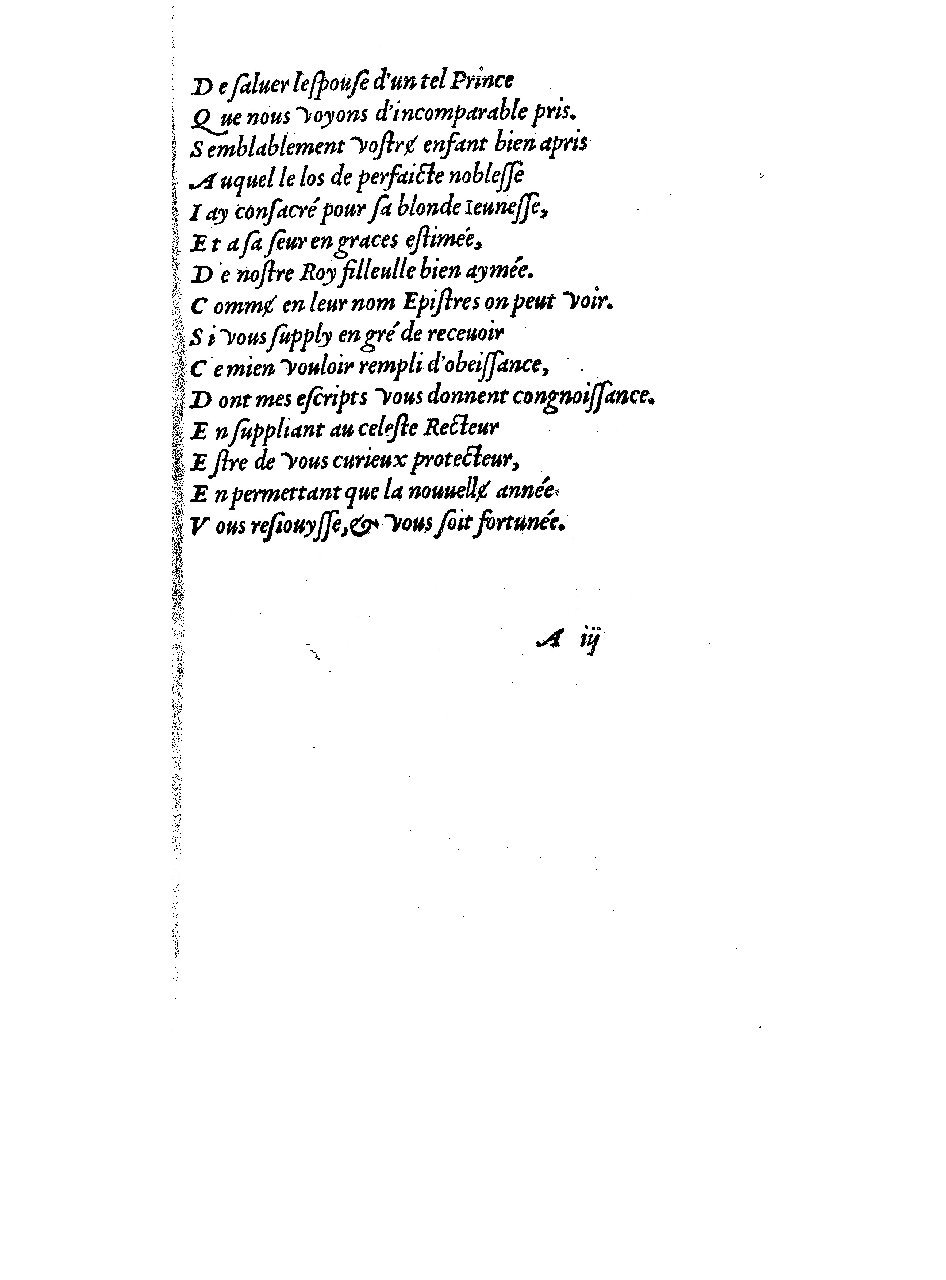 De ſaluer leſpouſe d'un tel Prince
Que nous voyons d'incomparable pris.
Semblablement voſtrɇ enfant bien apris
Auquel le los de perfaicte nobleſſe
Iay conſacré pour ſa blonde ieuneſſe,
Et a ſa ſeur en graces eſtimée,
De noſtre Roy filleulle bien aymée.
Commɇ en leur nom Epiſtres on peut voir.
Si vous ſupply en gré de receuoir
Ce mien vouloir rempli d'obeiſſance,
Dont mes eſcripts vous donnent congnoiſſance.
En ſuppliant au celeſte Recteur
Eſtre de vous curieux protecteur,
En permettant que la nouuellɇ année
Vous reſiouyſſe, & vous ſoit fortunée.
A iij